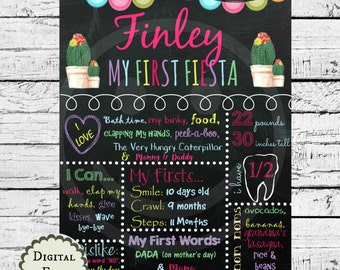 Finley
MY FIRST FIESTA
I LOVE
Bath time, my binky, food,
clapping My Hands, peek-a-boo,
The Very Hungry Caterpillar
& Mommy & Daddy
22 pounds
30 inches tall
I Can...
walk, clap my
hands, give
kisses, Wave
bye-bye
My Firsts...
Smile: 10 days old
Crawl: 9 months
Steps: 11 Months
i have
1/2
My First Words:
DADA (on mother's day)
avocados,
bananas,
grandma's
lasagna,
rice &
beans
Dislike
Digital